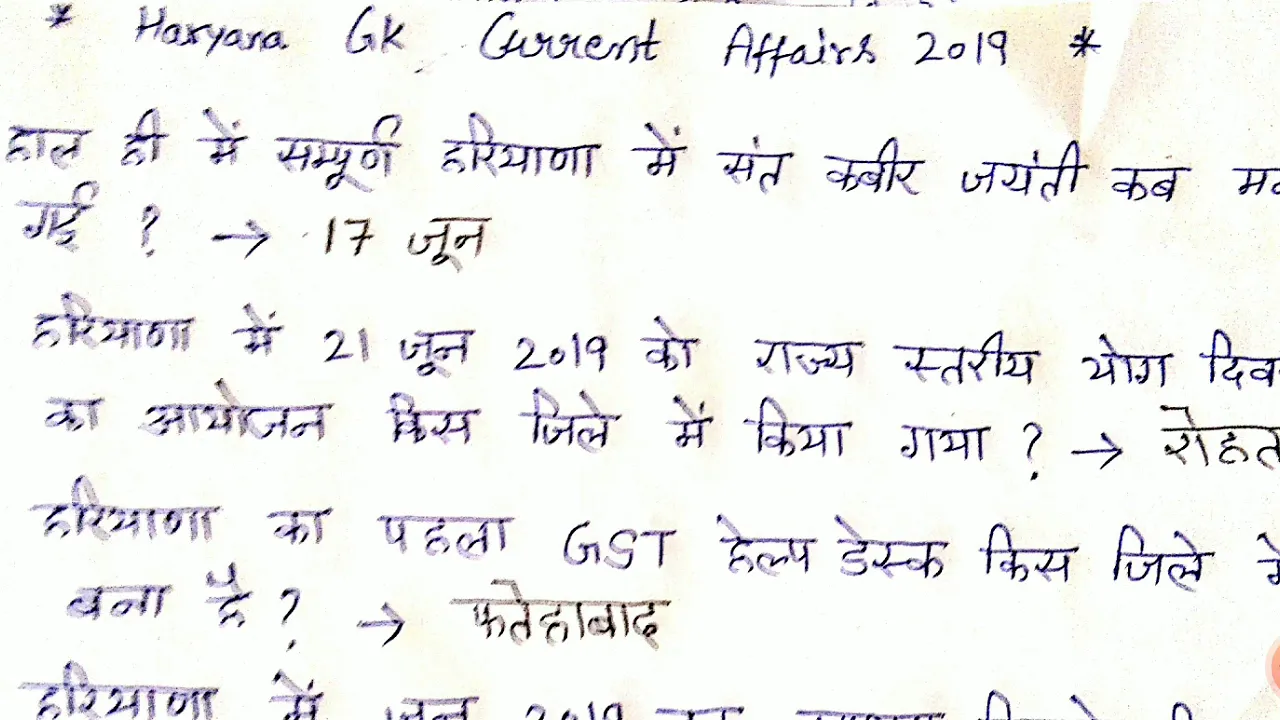 * Haryana GK Current Affairs 2019 *
हाल ही में सम्पूर्ण हरियाणा में संत कबीर जयंती कब
गई ? → 17 जून
हरियाणा में 21 जून 2019 को राज्य स्तरीय योग
का आयोजन किस जिले में किया गया ? →
हरियाणा का पहला GST हेल्प डेस्क किस जिले
बना है ? → फतेहाबाद
हरियाणा में जून 2019